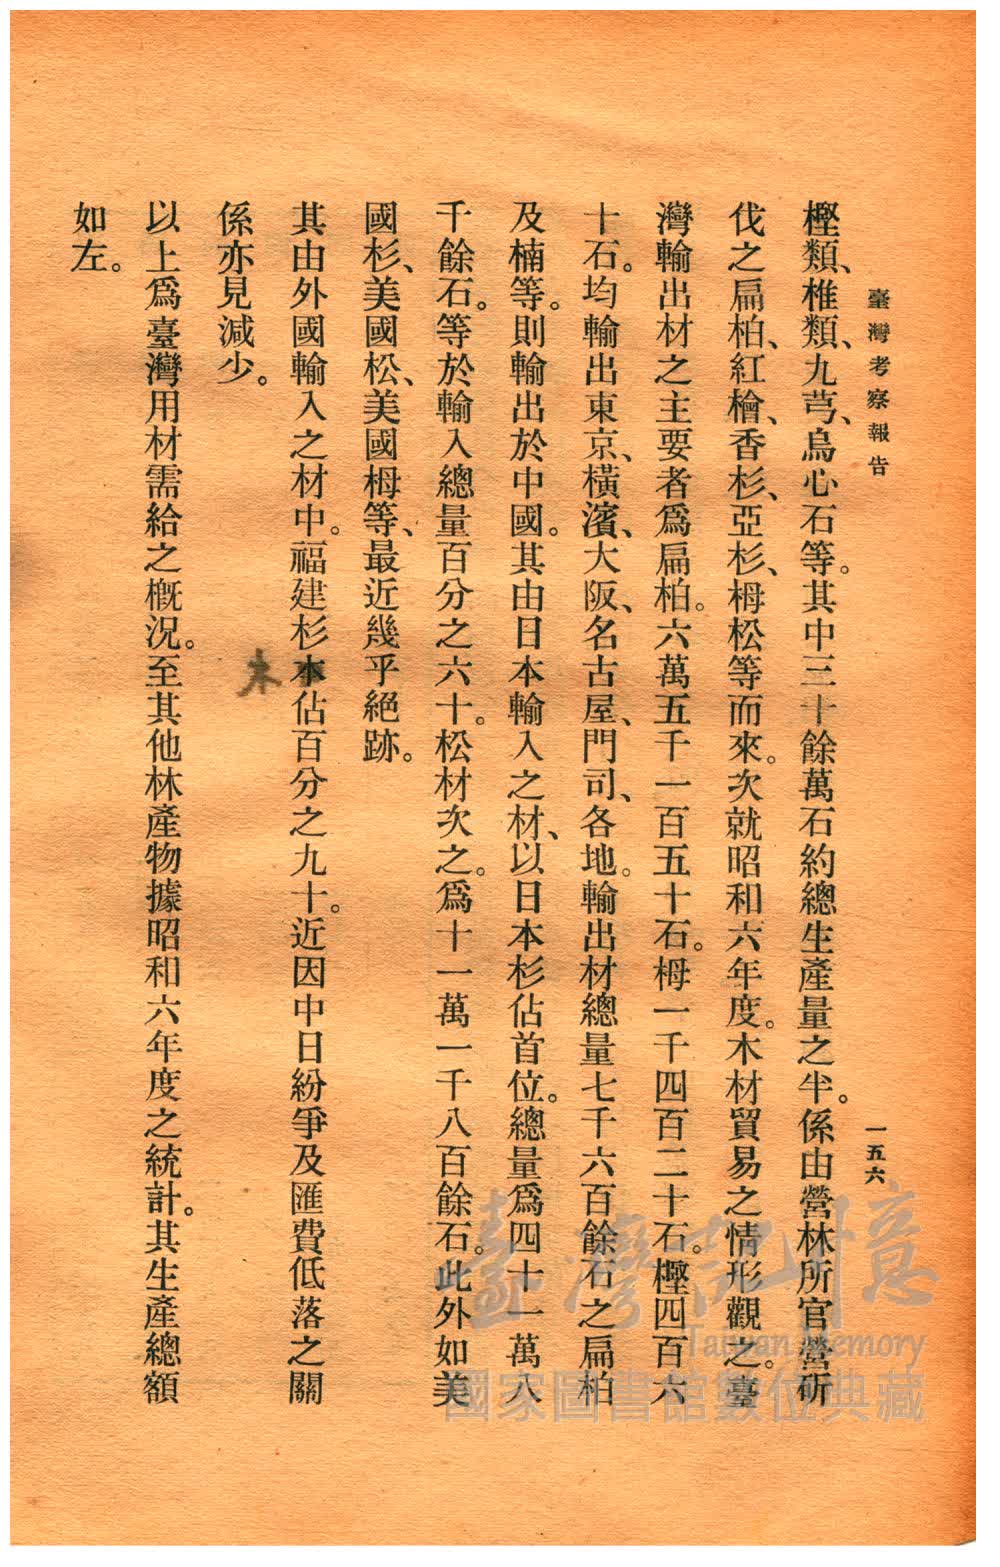 臺灣考察報告
一五六
樫類、椎類、九芎、烏心石等。其中三十餘萬石約總生產量之半。係由營林所官營斫
伐之扁柏、紅檜、香杉、亞杉、栂松等而來。次就昭和六年度。木材貿易之情形觀之。臺
灣輸出材之主要者爲扁柏。六萬五千一百五十石。栂一千四百二十石。樫四百六
十石。均輸出東京、橫濱、大阪、名古屋、門司、各地。輸出材總量七千六百餘石之扁柏
及楠等。則輸出於中國。其由日本輸入之材、以日本杉佔首位。總量爲四十一萬八
千餘石。等於輸入總量百分之六十。松材次之。爲十一萬一千八百餘石。此外如美
國杉、美國松、美國栂等、最近幾乎絕跡。
其由外國輸入之材中。福建杉本佔百分之九十。近因中日紛爭及匯費低落之關
木
係亦見減少。
以上爲臺灣用材需給之概況。至其他林產物據昭和六年度之統計。其生產總額
如左。
臺灣記憶
Taiwan Memory
國家圖書館數位典藏